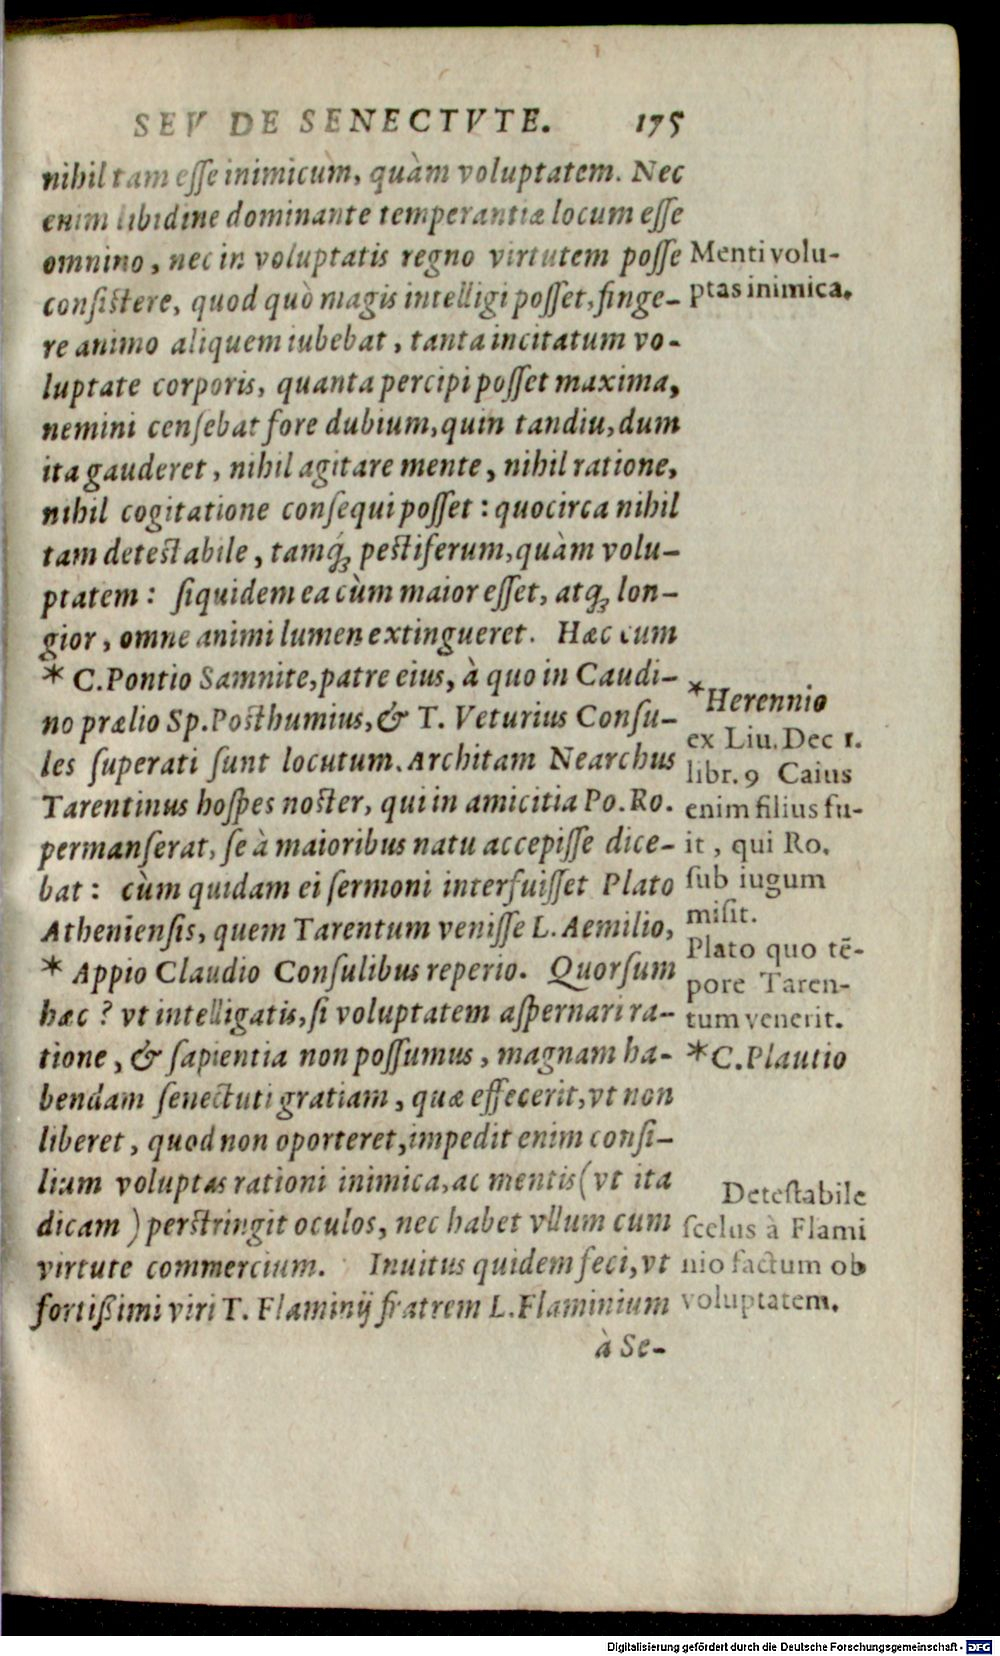 SEV DE SENECTVTE. 175
nihil tam esse inimicum, quàm voluptatem. Nec
enim libidine dominante temperantiæ locum esse
omnino, nec in voluptatis regno virtutem posse
consistere, quod quò magis intelligi posset, finge-
re animo aliquem iubebat, tanta incitatum vo-
luptate corporis, quanta percipi posset maxima,
nemini censebat fore dubium, quin tandiu, dum
ita gauderet, nihil agitare mente, nihil ratione,
nihil cogitatione consequi posset: quocirca nihil
tam detestabile, tamq́ꝫ pestiferum, quàm volu-
ptatem: siquidem ea cùm maior esset, atqꝫ lon-
gior, omne animi lumen extingueret. Hæc cum
* C. Pontio Samnite, patre eius, à quo in Caudi-
no prælio Sp. Posthumius, & T. Veturius Consu-
les superati sunt locutum. Architam Nearchus
Tarentinus hospes noster, qui in amicitia Po. Ro.
permanserat, se à maioribus natu accepisse dice-
bat: cùm quidam ei sermoni interfuisset Plato
Atheniensis, quem Tarentum venisse L. Aemilio,
* Appio Claudio Consulibus reperio. Quorsum
hæc? vt intelligatis, si voluptatem aspernari ra-
tione, & sapientia non possumus, magnam ha-
bendam senectuti gratiam, quæ effecerit, vt non
liberet, quod non oporteret, impedit enim consi-
lium voluptas rationi inimica, ac mentis (vt ita
dicam) perstringit oculos, nec habet vllum cum
virtute commercium. Inuitus quidem feci, vt
fortißimi viri T. Flaminij fratrem L. Flaminium
à Se-
Menti volu-
ptas inimica.
*Herennio
ex Liu. Dec 1.
libr. 9 Caius
enim filius fu-
it, qui Ro.
sub iugum
misit.
Plato quo tē-
pore Taren-
tum venerit.
*C. Plautio
Detestabile
scelus à Flami
nio factum ob
voluptatem.
Digitalisierung gefördert durch die Deutsche Forschungsgemeinschaft - DFG